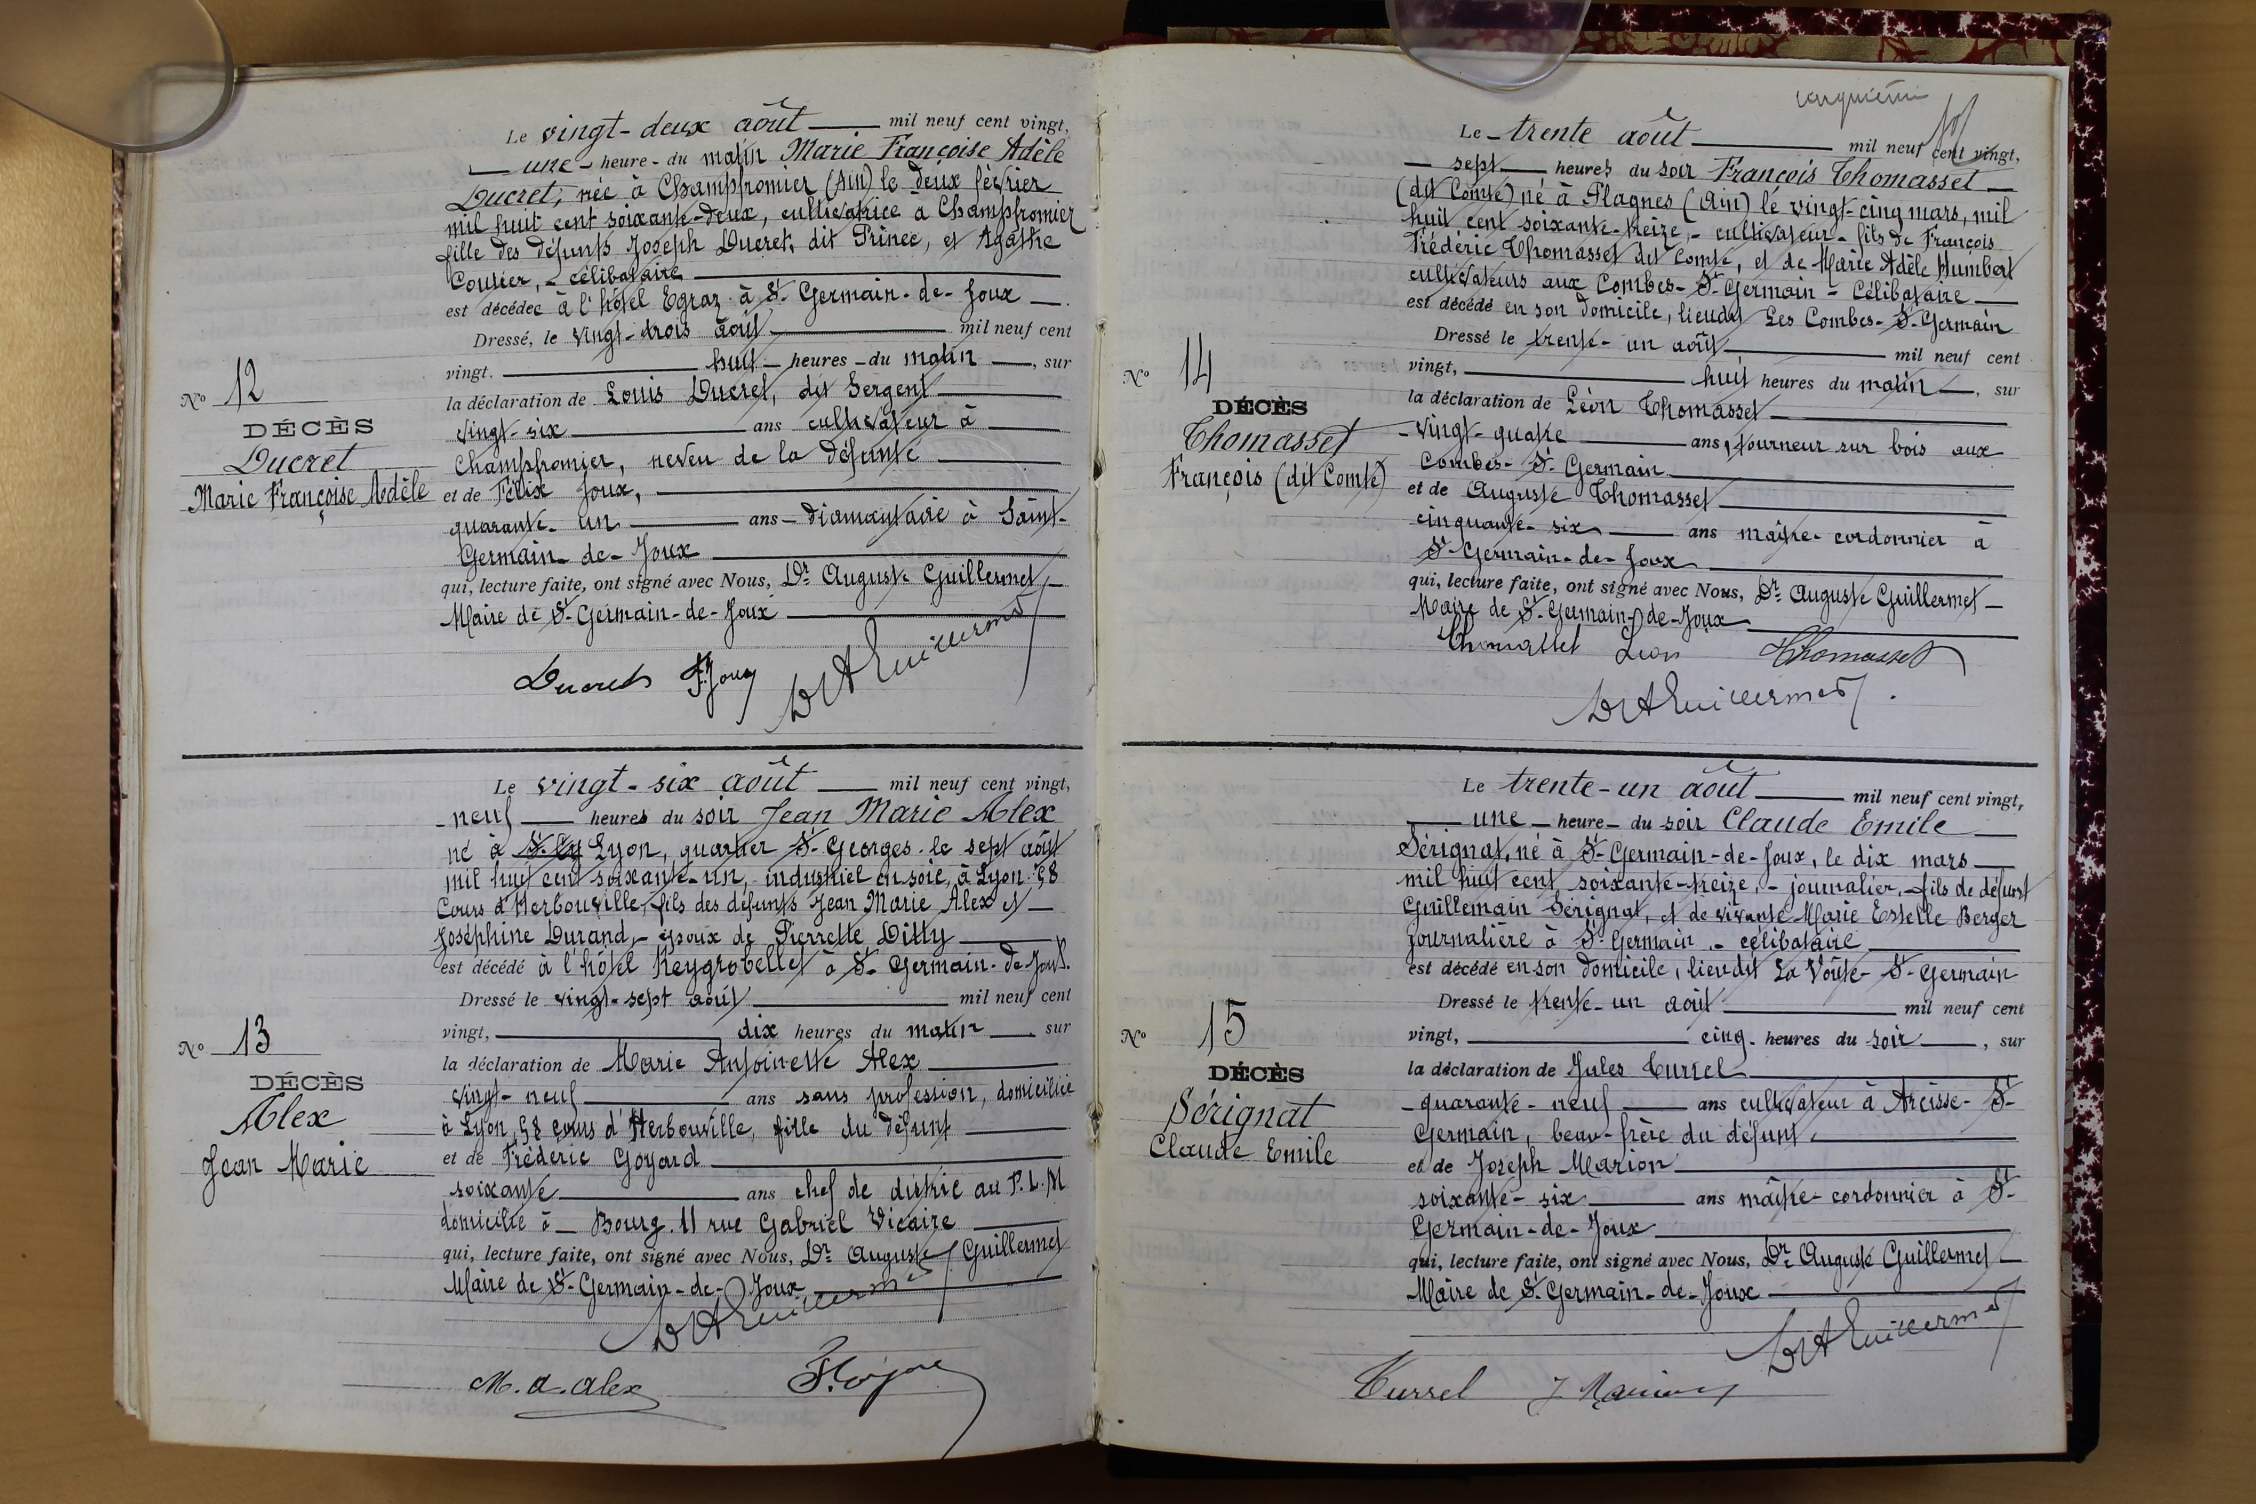 Le vingt-deux août mil neuf cent vingt,
une heure du matin Marie Françoise Adèle
Ducret, née à Champfromier (Ain) le deux février
mil huit cent soixante-deux, cultivatrice à Champfromier
fille des défunts Joseph Ducret, dit Prince, et Agathe
Coutier, - célibataire
est décédée à l'hôtel Egraz à St-Germain-de-Joux
Dressé, le vingt-trois août mil neuf cent
vingt. huit heures du matin, sur
la déclaration de Louis Ducret, dit Sergent
vingt-six ans cultivateur à
Champfromier, neveu de la défunte
et de Félix Joux,
quarante-un ans - diamantaire à Saint-
Germain-de-Joux
qui, lecture faite, ont signé avec Nous, Dr Auguste Guillermet
Maire de St-Germain-de-Joux
Ducret F. Joux Dr A Guillermet
No 12
DÉCÈS
Ducret
Marie Françoise Adèle
Le vingt-six août mil neuf cent vingt,
neuf heures du soir Jean Marie Alex
né à Lyon, quartier St-Georges le sept août
mil huit cent soixante-un, industriel en soie, à Lyon 58
Cours d'Herbouville, fils des défunts Jean Marie Alex et
Joséphine Durand, - époux de Pierrette Ditty
est décédé à l'hôtel Reygrobellet à St-Germain-de-Joux.
Dressé le vingt-sept août mil neuf cent
vingt, dix heures du matin, sur
la déclaration de Marie Antoinette Alex
vingt-neuf ans sans profession, domiciliée
à Lyon, 58 cours d'Herbouville, fille du défunt
et de Fréderic Goyard
soixante ans chef de district au P.L.M
domicilié à Bourg. 11 rue Gabriel Vicaire
qui, lecture faite, ont signé avec Nous, Dr Auguste Guillermet
Maire de St-Germain-de-Joux
Dr A Guillermet
M. a. alex F. Goyard
No 13
DÉCÈS
Alex
Jean Marie
Le trente août mil neuf cent vingt,
sept heures du soir François Thomasset
(dit Comte) né à Plagnes (Ain) le vingt-cinq mars, mil
huit cent soixante-treize, - cultivateur - fils de François
Frédéric Thomasset dit Comte, et de Marie Adèle Humbert
cultivateurs aux Combes-St-Germain - Célibataire
est décédé en son domicile, lieudit Les Combes-St-Germain
Dressé le trente-un août mil neuf cent
vingt, huit heures du matin, sur
la déclaration de Léon Thomasset
vingt-quatre ans, tourneur sur bois aux
Combes-St-Germain
et de Auguste Thomasset
cinquante-six ans maître-cordonnier à
St-Germain-de-Joux
qui, lecture faite, ont signé avec Nous, Dr Auguste Guillermet
Maire de St-Germain-de-Joux
Thomasset Léon Thomasset
Dr A Guillermet
No 14
DÉCÈS
Thomasset
François (dit Comte)
Le trente-un août mil neuf cent vingt,
une heure du soir Claude Emile
Sérignat, né à St-Germain-de-Joux, le dix mars
mil huit cent soixante-treize, - journalier, - fils de défunt
Guillemain Sérignat, et de vivante Marie Estelle Berger
journalière à St-Germain - célibataire
est décédé en son domicile, lieudit La Voûte-St-Germain
Dressé le trente-un août mil neuf cent
vingt, cinq heures du soir, sur
la déclaration de Jules Turrel
quarante-neuf ans cultivateur à Arcisse-St-
Germain, beau-frère du défunt,
et de Joseph Marion
soixante-six ans maître-cordonnier à St-
Germain-de-Joux
qui, lecture faite, ont signé avec Nous, Dr Auguste Guillermet
Maire de St-Germain-de-Joux
Dr A Guillermet
Turrel J Marion
No 15
DÉCÈS
Sérignat
Claude Emile